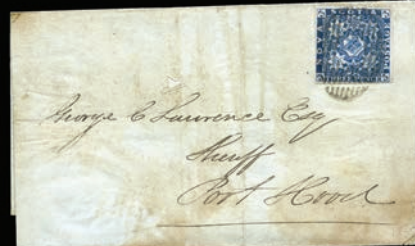 George C Lawrence Esq
Sheriff
Port Hood